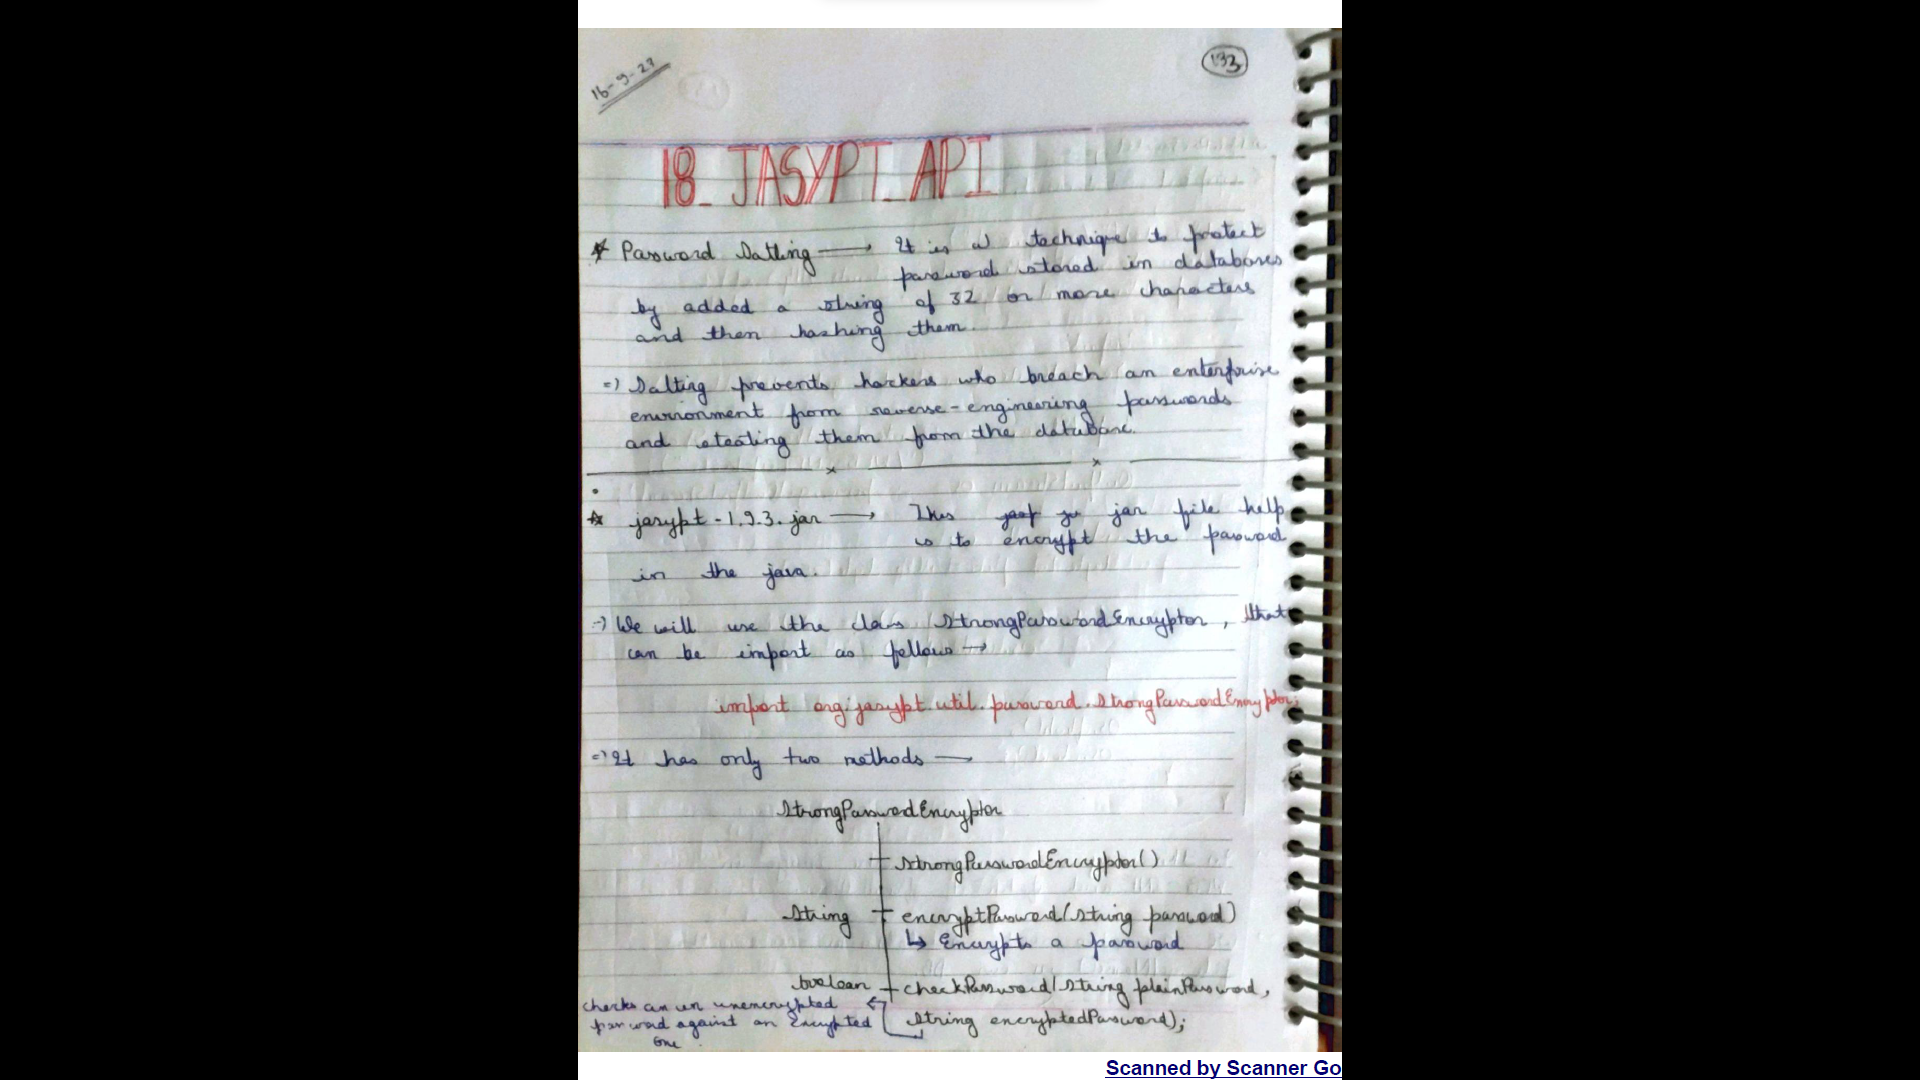 16-9-27
133
18_ JASYPT_API
* Password Salting → It is a technique to protect
password stored in databases
by added a string of 32 or more characters
and then hashing them.
=) Salting prevents hackers who breach an enterprise
environment from reverse-engineering passwords
and stealing them from the database.
* jasypt-1.9.3.jar → This jar file help
is to encrypt the password
in the java.
=) We will use the class StrongPasswordEncryptor, that
can be import as follows →
import org.jasypt.util.password.StrongPasswordEncryptor;
=) It has only two methods →
StrongPasswordEncryptor
StrongPasswordEncryptor()
String encryptPassword(String password)
↳ Encrypts a password
boolean checkPassword(String plainPassword,
String encryptedPassword);
checks an un unencrypted
password against an Encrypted
one.
Scanned by Scanner Go